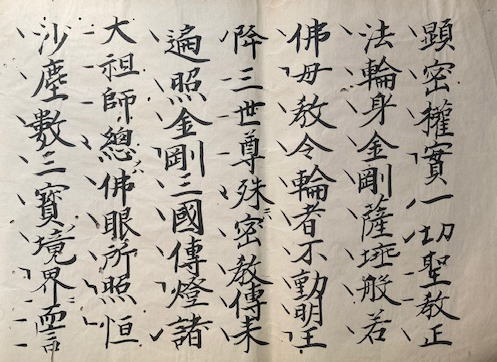 顕密權實一切聖教正
法輪身金剛薩埵般若
佛母教令輪者不動明王
降三世尊殊密教傳来
遍照金剛三國傳燈諸
大祖師總佛眼所照恒
沙塵數三寶境界而言